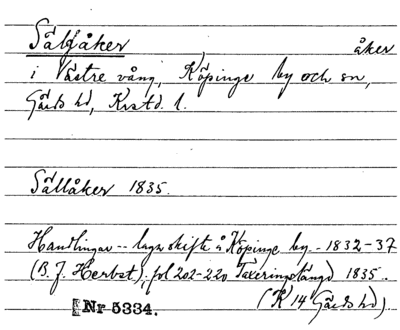 Sälgåker, åker
i Västre vång, Köpinge by och sn,
Gärds hd, Krstd. l.
Sällåker 1835.
Handlingar -- laga skifte å Köpinge by. - 1832-37
(B. J. Herbst); fol 202-220 Taxeringslängd 1835.
(K 14 Gärds hd)
Nr 5334.